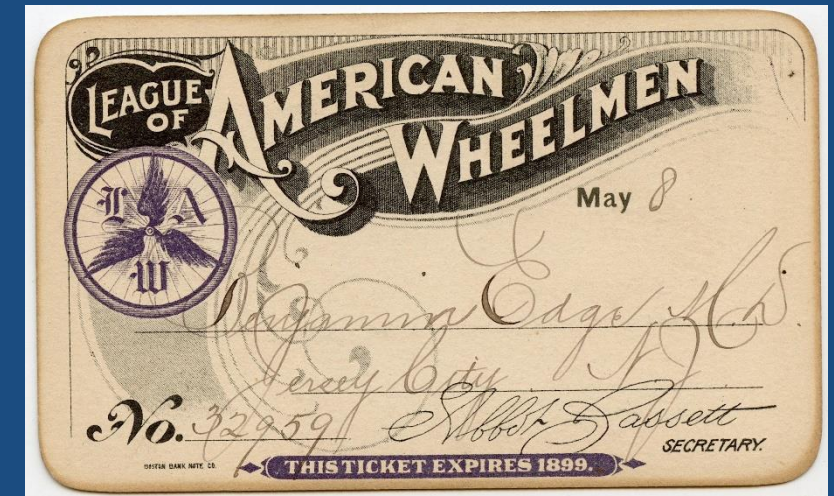 LEAGUE OF AMERICAN WHEELMEN
L A W
May 8
Benjamin Edge M.D.
Jersey City NJ
No. 32959 Abbot Bassett
SECRETARY.
BOSTON BANK NOTE CO.
THIS TICKET EXPIRES 1899.